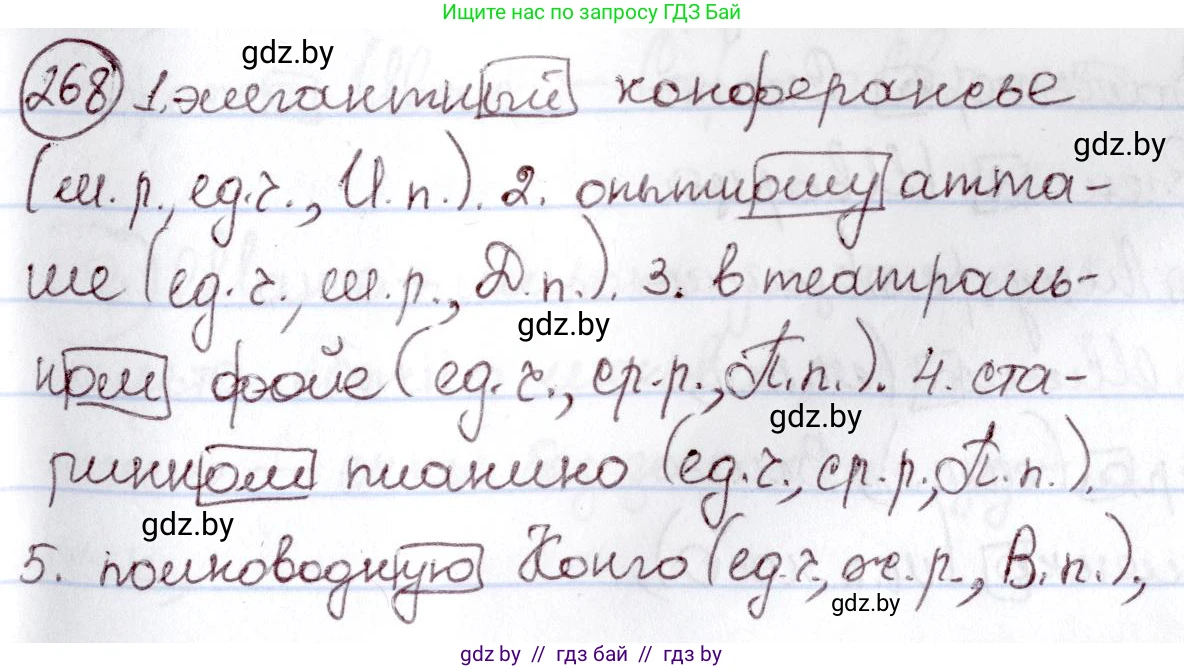 Ищите нас по запросу ГДЗ Бай
gdz.by
268 1. элегантный конферансье
gdz.by
(м.р., ед.ч., И.п.). 2. опытному атта-
ше (ед.ч., м.р., Д.п.). 3. в театраль-
gdz.by
ном фойе (ед.ч., ср.р., П.п.). 4. ста-
gdz.by
ринном пианино (ед.ч., ср.р., П.п.).
gdz.by
5. полноводную Конго (ед.ч, ж.р., В.п.),
gdz.by
gdz.by // гдз бай // гдз by